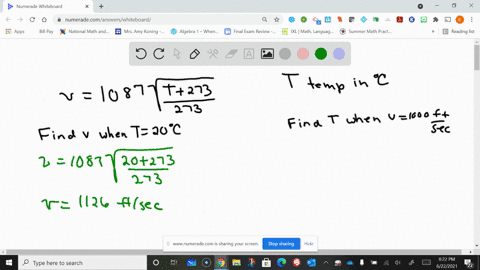 Numerade Whiteboard
numerade.com/answers/whiteboard/
Apps
Bill Pay
National Math and...
Mrs. Amy Koning -...
Algebra 1 - Whown...
Final Exam Review -...
IXL | Math, Languag...
Summer Math Pract...
Reading list
v = 1087 √(T+273 / 273)
T temp in °C
Find v when T=20°C
Find T when v=1000 ft/sec
v = 1087 √(20+273 / 273)
v = 1126 ft/sec
www.numerade.com is sharing your screen.
Stop sharing
Hide
Type here to search
8:22 PM
6/22/2021
22